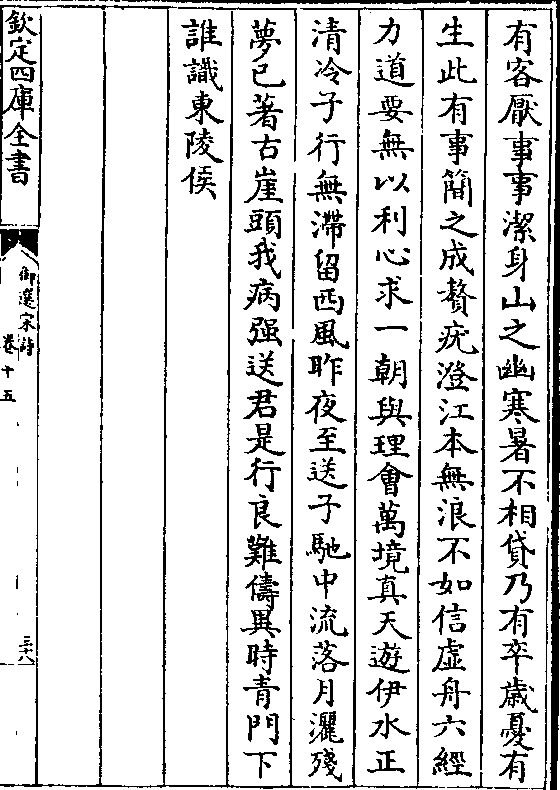 有客厭事事潔身山之幽寒暑不相貸乃有卒歲憂有
生此有事簡之成贅疣澄江本無浪不如信虛舟六經
力道要無以利心求一朝與理會萬境真天遊伊水正
清冷子行無滯留西風昨夜至送子馳中流落月灑殘
夢已著古崖頭我病强送君是行良難儔異時青門下
誰識東陵侯
欽定四庫全書
御選宋詩
卷十五
三十八